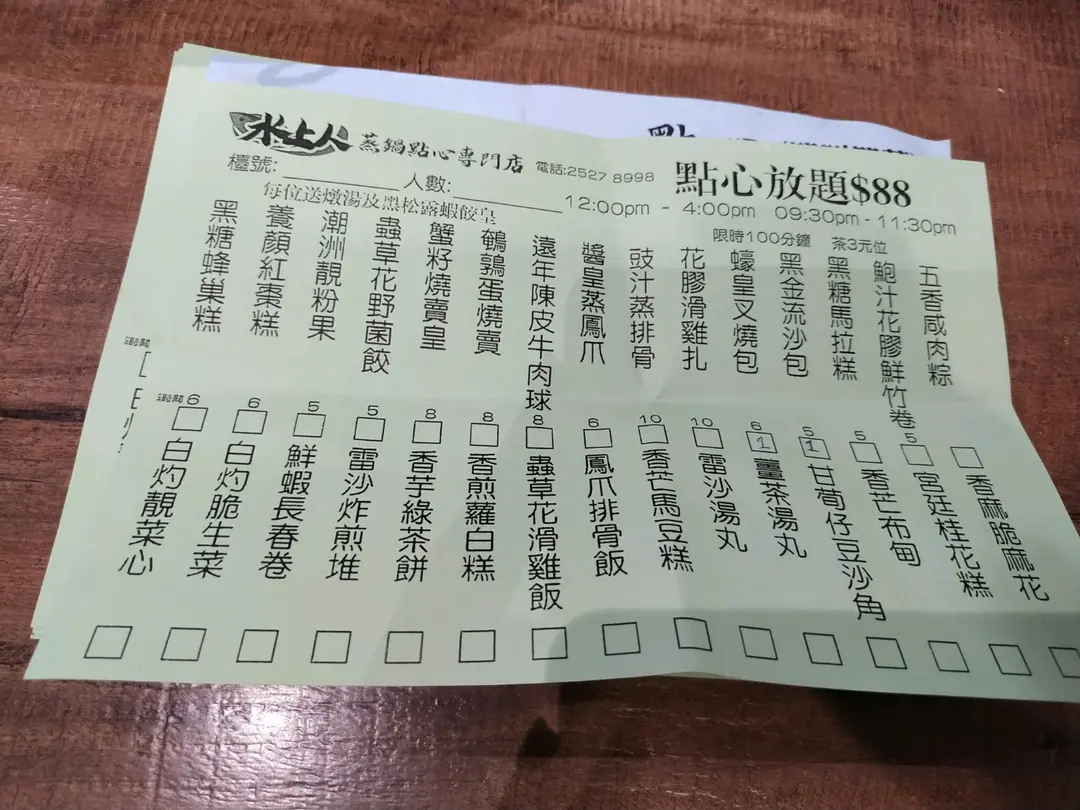 水上人 蒸鍋點心專門店 電話:2527 8998
點心放題$88
櫃號: 人數:
12:00pm - 4:00pm 09:30pm - 11:30pm
每位送燉湯及黑松露蝦餃皇
限時100分鐘 茶3元位
五香咸肉粽
鮑汁花膠鮮竹卷 5
黑糖馬拉糕 5
黑金流沙包 5 1
蠔皇叉燒包 6 1
花膠滑雞扎 10
豉汁蒸排骨 10
醬皇蒸鳳爪 6
遠年陳皮牛肉球 8
鵪鶉蛋燒賣 8
蟹籽燒賣皇 8
蟲草花野菌餃 5
潮洲靚粉果 5
養顏紅棗糕 6
黑糖蜂巢糕 6
香麻脆麻花
宮廷桂花糕
香芒布甸
甘荀仔豆沙角
薑茶湯丸
雷沙湯丸
香芒馬豆糕
鳳爪排骨飯
蟲草花滑雞飯
香煎蘿白糕
香芋綠茶餅
雷沙炸煎堆
鮮蝦長春卷
白灼脆生菜
白灼靚菜心